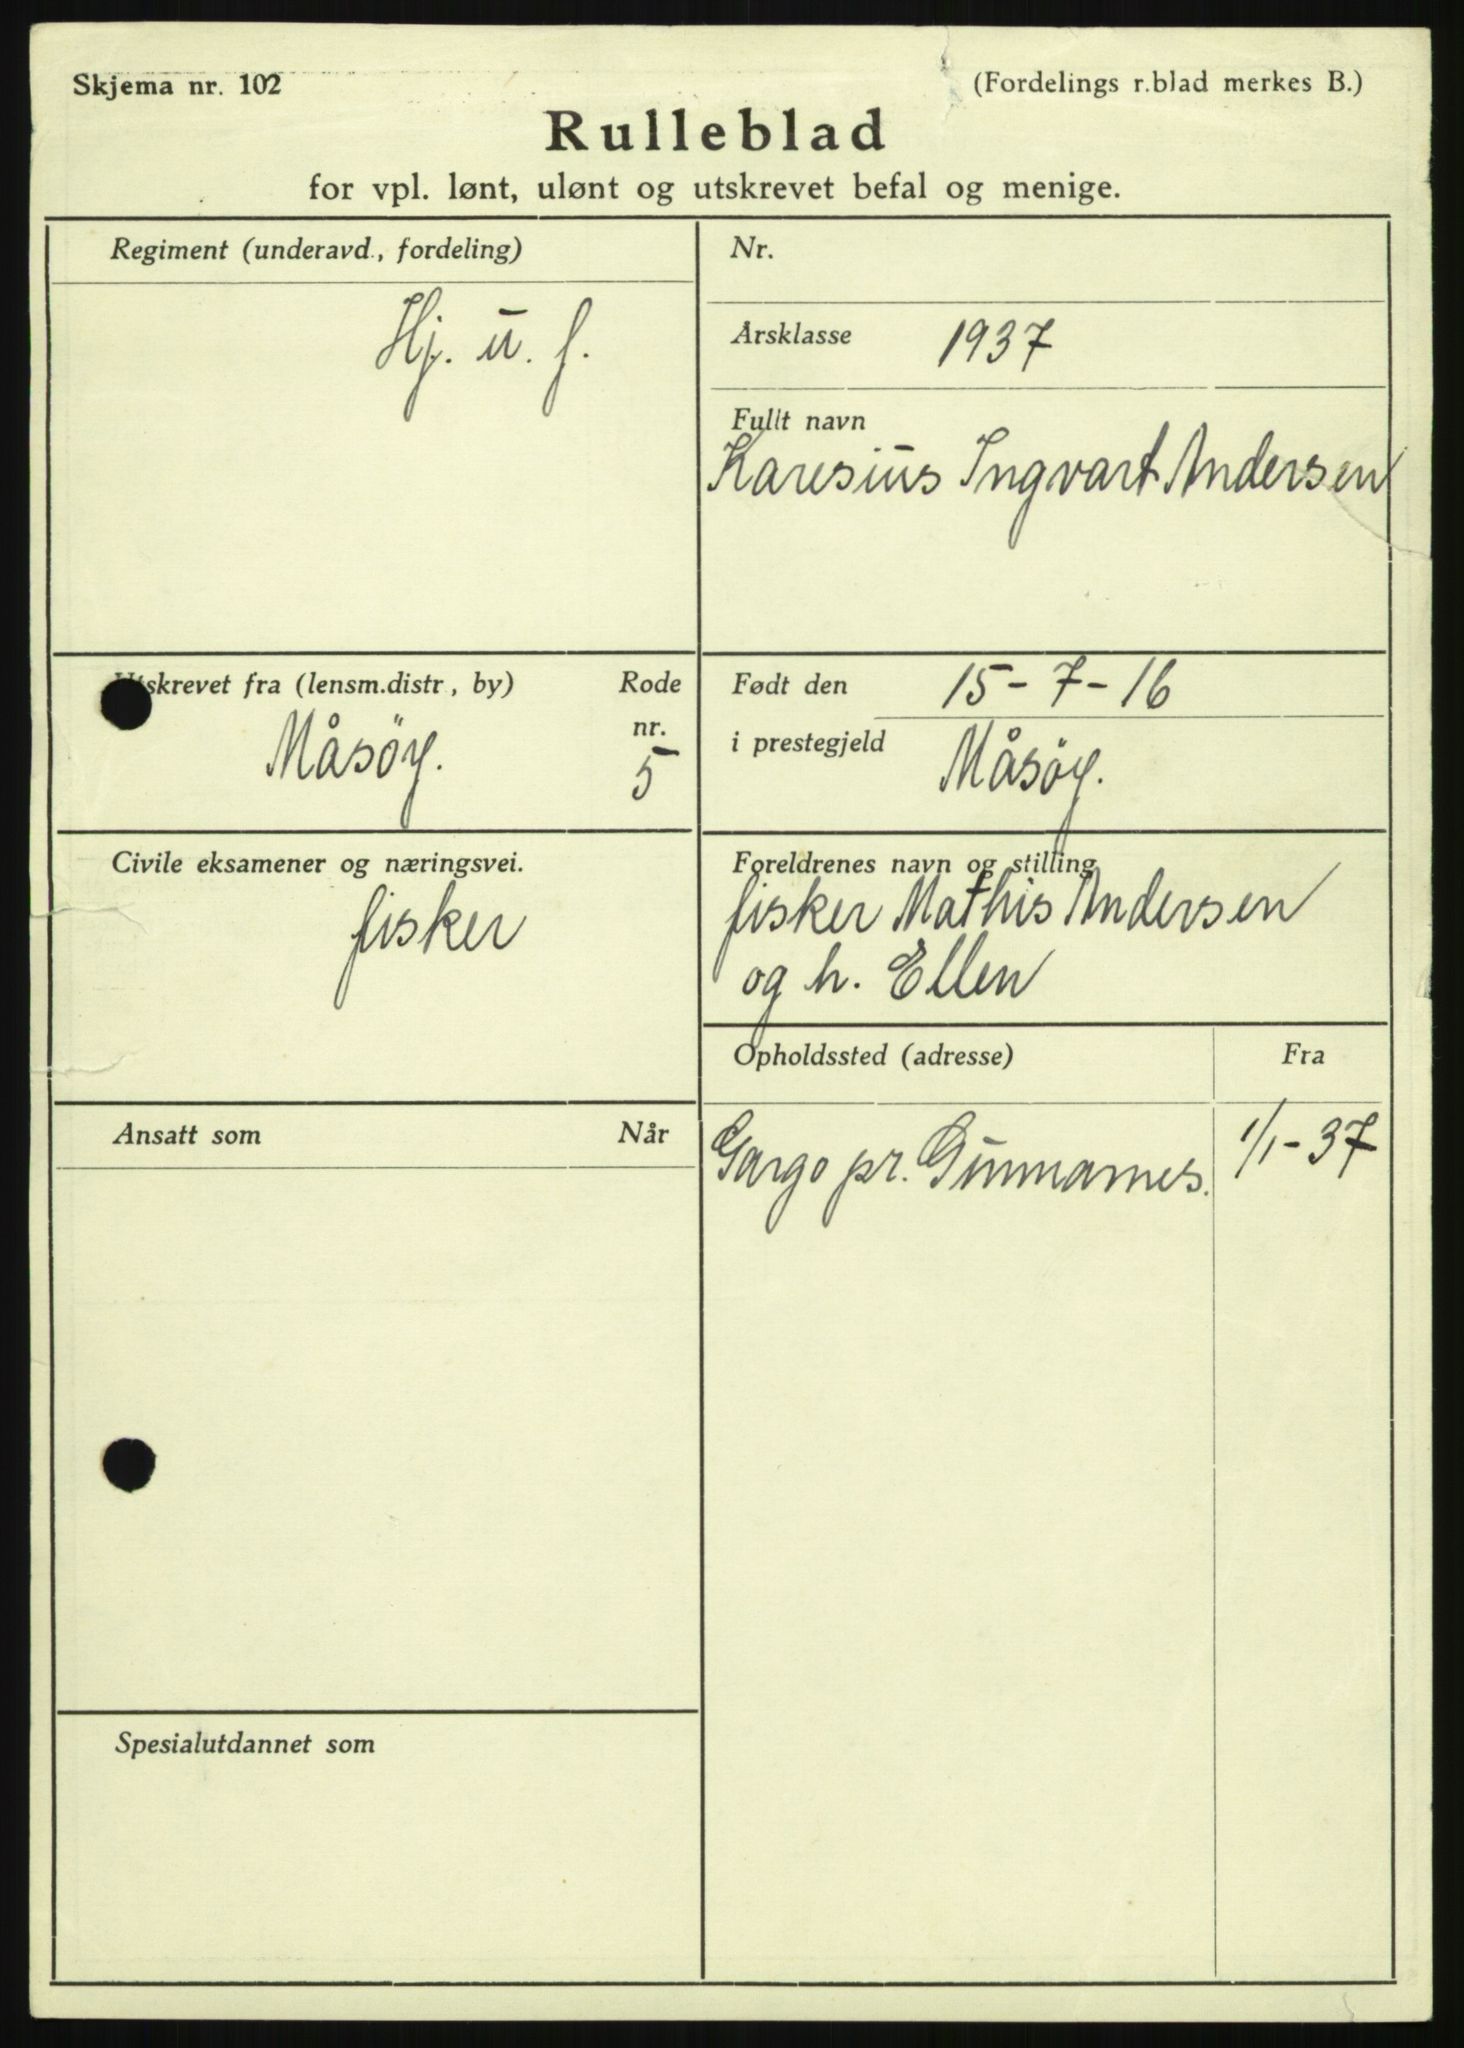 Skjema nr. 102
(Fordelings r.blad merkes B.)
Rulleblad
for vpl. lønt, ulønt og utskrevet befal og menige.
Regiment (underavd., fordeling)
Hj. u. f.
Nr.
Årsklasse 1937
Fullt navn
Karesius Ingvart Andersen
Utskrevet fra (lensm.distr., by)
Rode
nr.
Måsøy.
5
Født den 15-7-16
i prestegjeld Måsøy.
Civile eksamener og næringsvei.
fisker
Foreldrenes navn og stilling
fisker Mathis Andersen
og h. Ellen
Opholdssted (adresse)
Fra
Gargo pr. Gunnarnes.
1/1-37
Ansatt som
Når
Spesialutdannet som